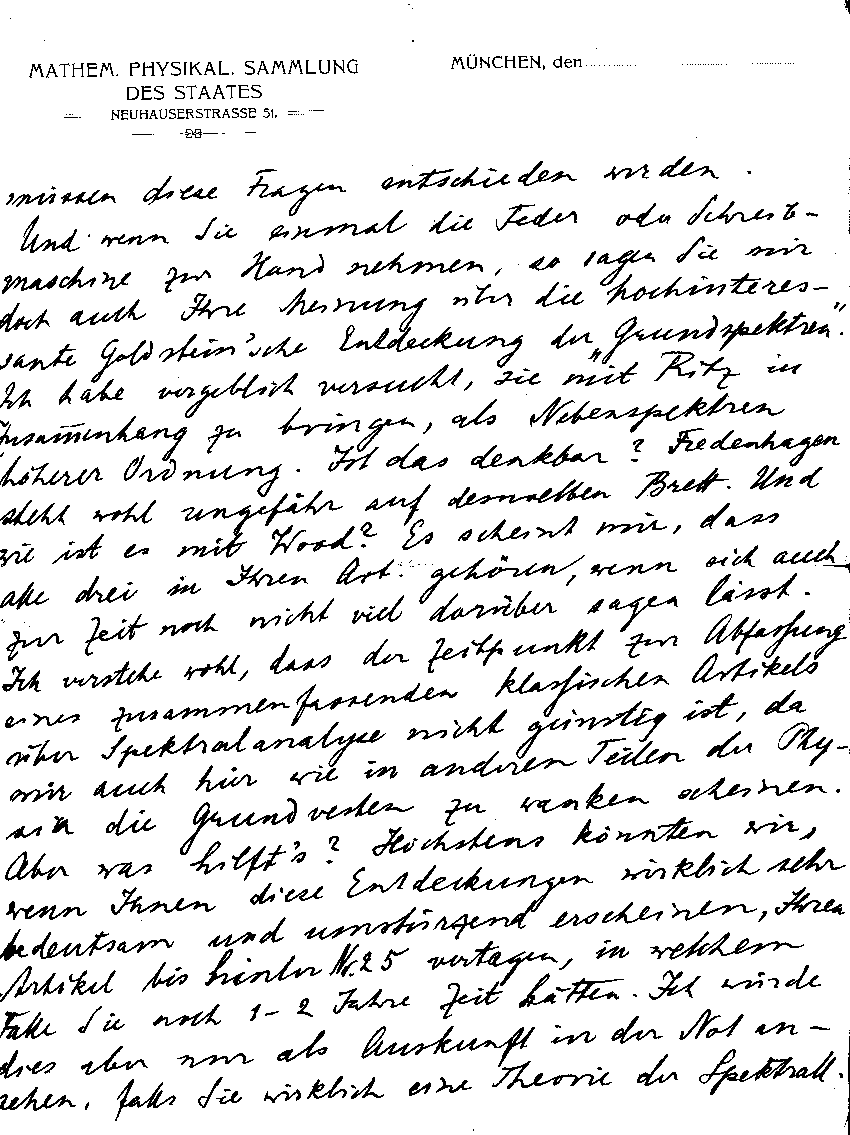 MATHEM. PHYSIKAL. SAMMLUNG
DES STAATES
NEUHAUSERSTRASSE 51.
MÜNCHEN, den
müssen diese Fragen entschieden werden.
Und wenn Sie einmal die Feder oder Schreib-
maschine zur Hand nehmen, so sagen Sie mir
doch auch Ihre Meinung über die hochinteres-
sante Goldstein'sche Entdeckung der „Grundspektren".
Ich habe vergeblich versucht, sie mit Ritz in
Zusam̄enhang zu bringen, als Nebenspektren
höherer Ordnung. Ist das denkbar? Fredenhagen
steht wohl ungefähr auf demselben Brett. Und
wie ist es mit Wood? Es scheint mir, dass
alle drei in Ihren Art. gehören, wenn sich auch
zur Zeit noch nicht viel darüber sagen lässt.
Ich verstehe wohl, dass der Zeitpunkt zur Abfassung
eines zusammenfassenden klassischen Artikels
über Spektralanalyse nicht günstig ist, da
mir auch hier wie in anderen Teilen der Phy-
sik die Grundvesten zu wanken scheinen.
Aber was hilft's? Höchstens könnten wir,
wenn Ihnen diese Entdeckungen wirklich sehr
bedeutsam und umstürzend erscheinen, Ihren
Artikel bis hinter Nr. 25 vertagen, in welchem
Falle Sie noch 1–2 Jahre Zeit hätten. Ich würde
dies aber nur als Auskunft in der Not an-
sehen, falls Sie wirklich eine Theorie der Spektrall.